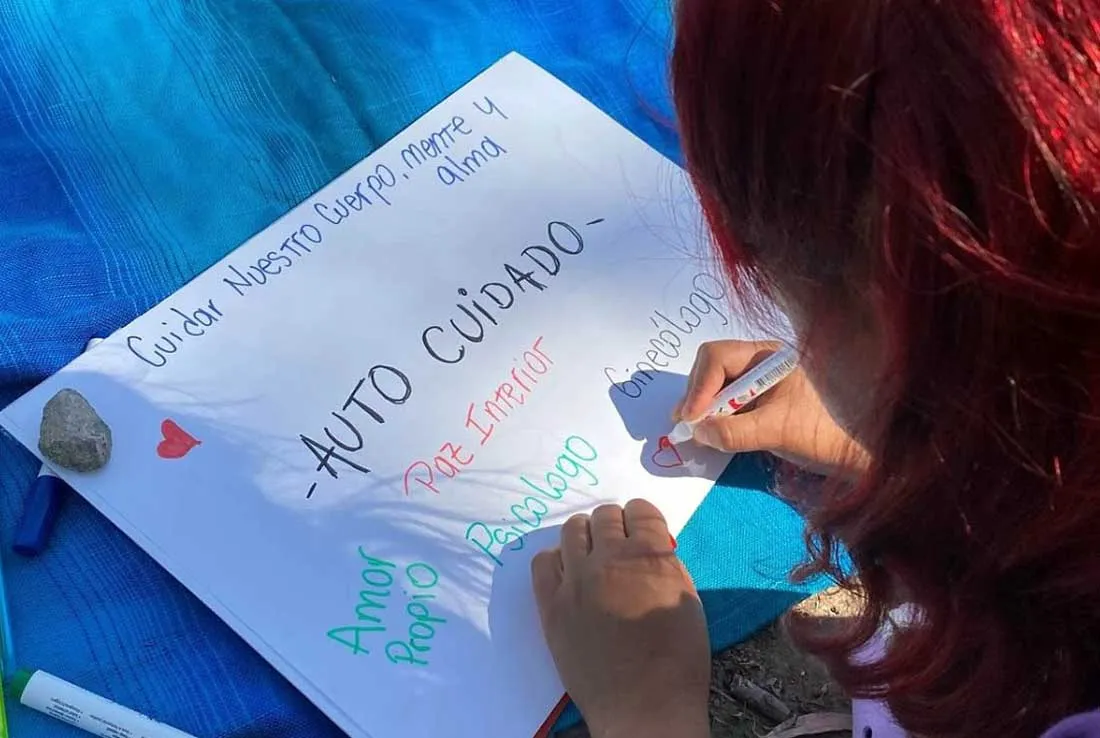 Cuidar Nuestro Cuerpo, mente y
alma
- AUTO CUIDADO -
Paz Interior
Ginecólogo
Psicologo
Amor
Propio